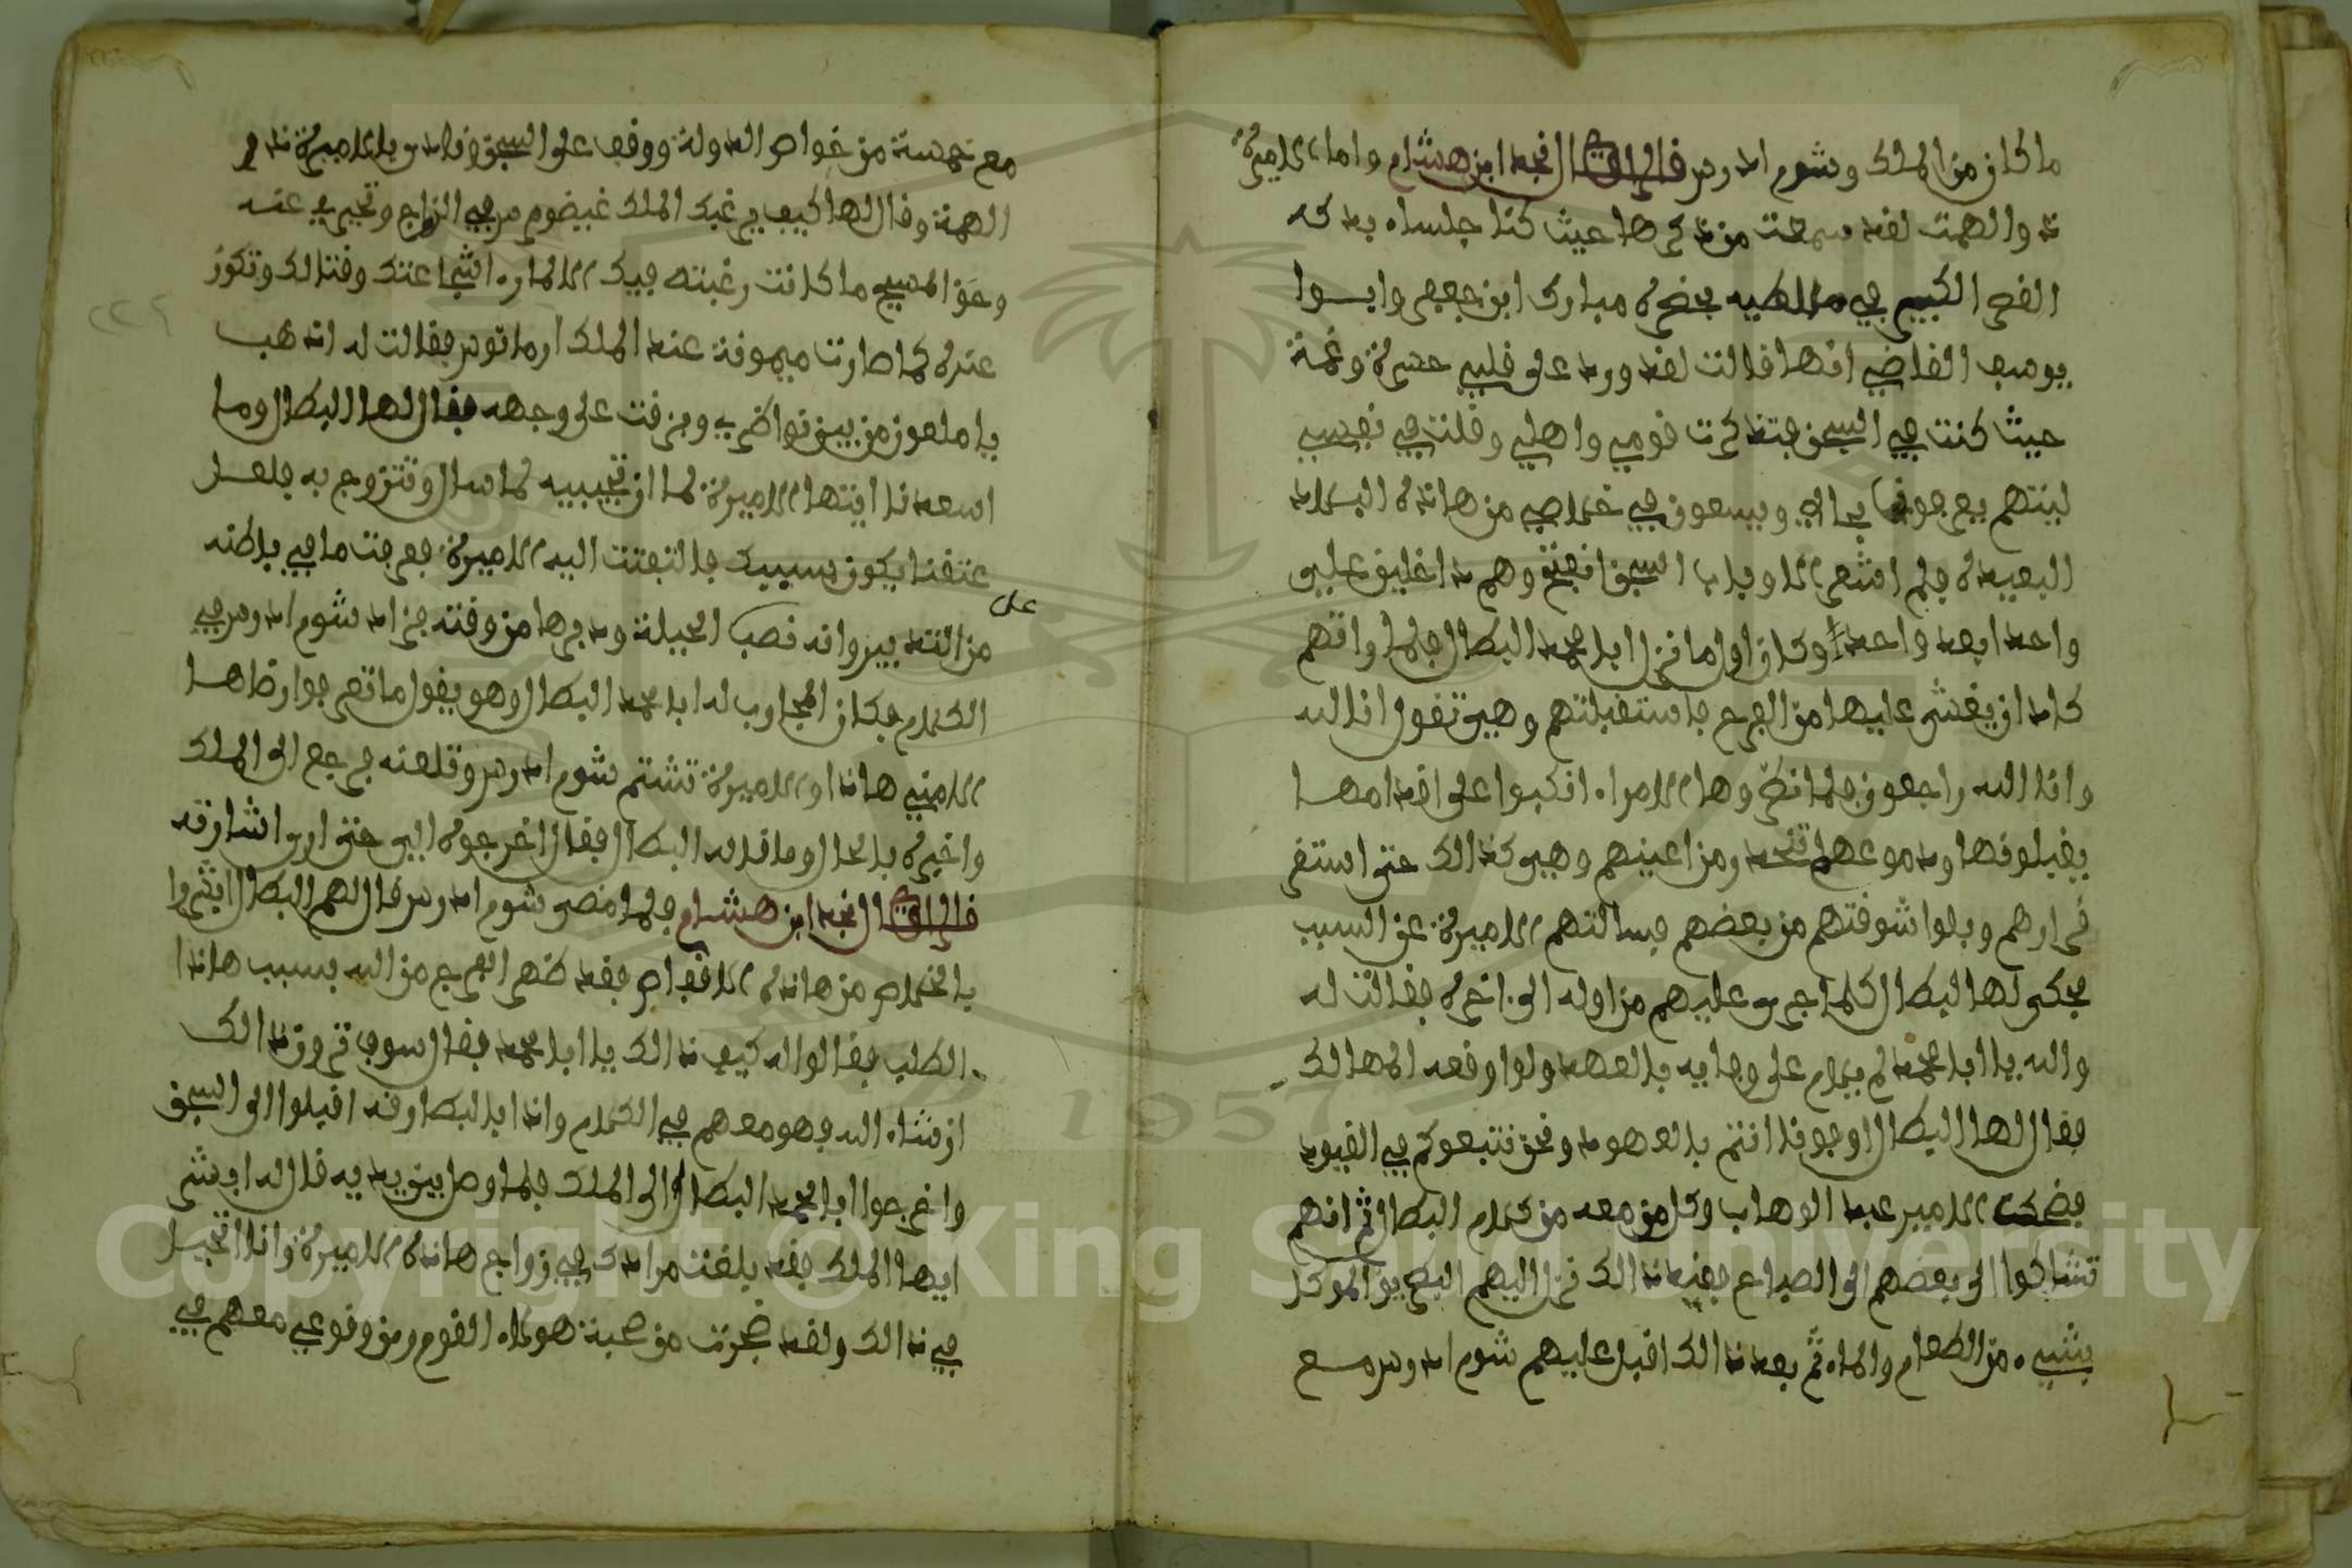 ما كان من الملك وشوم ادرس قال الراوي النجد ابن هشام واما الاميرة
ذ والهمت لقد سمعت من ذكرها حيث كنا جلساء بدكه
القصر الكبير في ملطيه بحضرة مبارك ابن جعفر وابـوا
يوسف القاضي انها قالت لقد ورد على قلبي حسرة وغمة
حيث كنت في السجن فتذكرت قومي واهلي وقلت في نفسي
ليتهم يعرجون بحالي ويسعون في خلاصي من هاذه البلاد
البعيدة فلم اشعر الا وباب السجن انفتح وهم داخلين علي
واحد ابعد واحد وكان اول ما نزل ابا محمد البطال فلما راتهم
كاد ان يغشى عليها من الفرح فاستقبلتهم وهي تقول انا لله
وانا اليه راجعون فلما نظروها الامراء انكبوا على اقدامها
يقبلونها ودموعهم تنحدر من اعينهم وهي كذالك حتى استقر
قرارهم وبلوا شوقتهم من بعضهم فسالتهم الاميرة عن السبب
فحكى لها البطال كلما جرى عليهم من اوله الى اخره فقالت له
والله يا ابا محمد لم يلام على وفايه بالعهد ولو اوقعه المهالك
فقال لها البطال اوجونا انتم بالعهود ونحن نتبعوكم في القيود
فضحكت الامير عبد الوهاب وكل من معه من كلام البطال ثم انهم
تشاكوا الى بعضهم الى الصباح فعند ذالك نزل اليهم البطريق الموكل
بشيء من الطعام والماء ثم بعد ذالك اقبل عليهم شوم ادرس مع
مع خمسة من خواص الدولة ووقف على السجن ونادى يا الاميرة ذ و
الهمة وقال لها كيف يرغبك الملك غيضوم مرمي الزواج وتخبر به عنه
وحق المسيح ما كانت رغبته فيك الا لماراء اشجاعتك وقتالك وتكون
عنده كما صارت ميمونة عند الملك ارمانوس فقالت له اذهب
يا ملعون من بين نواضري وبزقت على وجهه فقال لها البطال وما
اسعدنا ايتها الاميرة لما ان تجيبيه لما سال وتتزوج به فلعـل
عتقنا يكون بسببك فالتفتت اليه الاميرة فعرفت ما في باطنه
على
من التدبير وانه نصب الحيلة ودبرها من وقته فزاد شوم ادرس في
الكلام فكان المجاوب له ابا محمد البطال وهو يقول ما تعرفوا رضاها
الا مني هاذا والاميرة تشتم شوم ادرس وتلعنه فرجع الى الملك
واخبره بالحال وما قاله البطال فقال اخرجوه الي حتى ارى اشارته
قال الراوي النجد ابن هشام فلما مضى شوم ادرس قال لهم البطال ابشروا
بالخلاص من هاذه الاقفاص فقد ظهر الفرج من الله بسبب هاذا
الطلب فقالوا له كيف ذالك يا ابا محمد فقال سوف ترون ذالك
ان شاء الله فهو معهم في الكلام واذا بالبطارقه اقبلوا الى السجن
واخرجوا ابا محمد البطال الى الملك فلما وصل بين يديه قال له ابشر
ايها الملك فقد بلغت مرادك في زواج هاذه الاميرة وانا الكفيل
في ذالك ولقد ضجرت من صحبة هولاء القوم ومن وقوعي معهم في